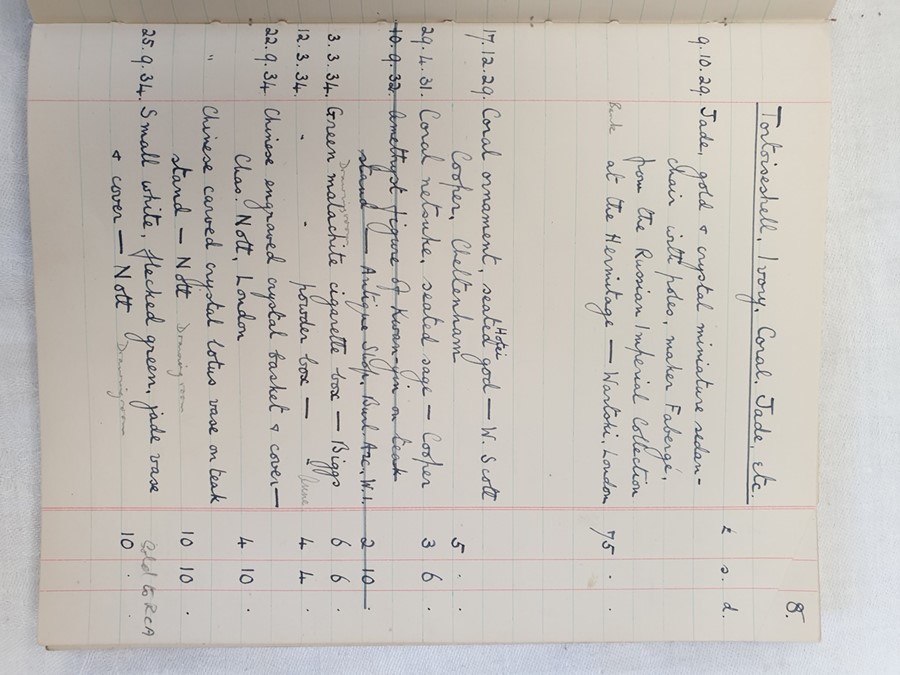 8.
Tortoiseshell, Ivory, Coral, Jade, etc.
£ s. d.
9.10.29. Jade, gold & crystal miniature sedan-
chair with poles, maker Fabergé,
from the Russian Imperial Collection
Bank at the Hermitage — Wartski, London 75 . .
17.12.29. Coral ornament, seated god — W. Scott
Hotei
Cooper, Cheltenham 5 . .
29.4.31. Coral netsuke, seated sage — Cooper 3 6 .
10.9.32. Amethyst figure of Kwan-yin on teak
stand — Antique Shop, Burl. Arc, W.1. 2 10 .
Drawingroom
3.3.34. Green malachite cigarette box — Biggs 6 6 .
12.3.34. " " powder box — " 4 4 .
22.9.34 Chinese engraved crystal basket & cover —
Chas. Nott, London 4 10 .
" Chinese carved crystal lotus vase on teak
stand — Nott Drawingroom 10 10 .
25.9.34. Small white, flecked green, jade vase Sold to RCA
& cover — Nott Drawingroom 10 . .